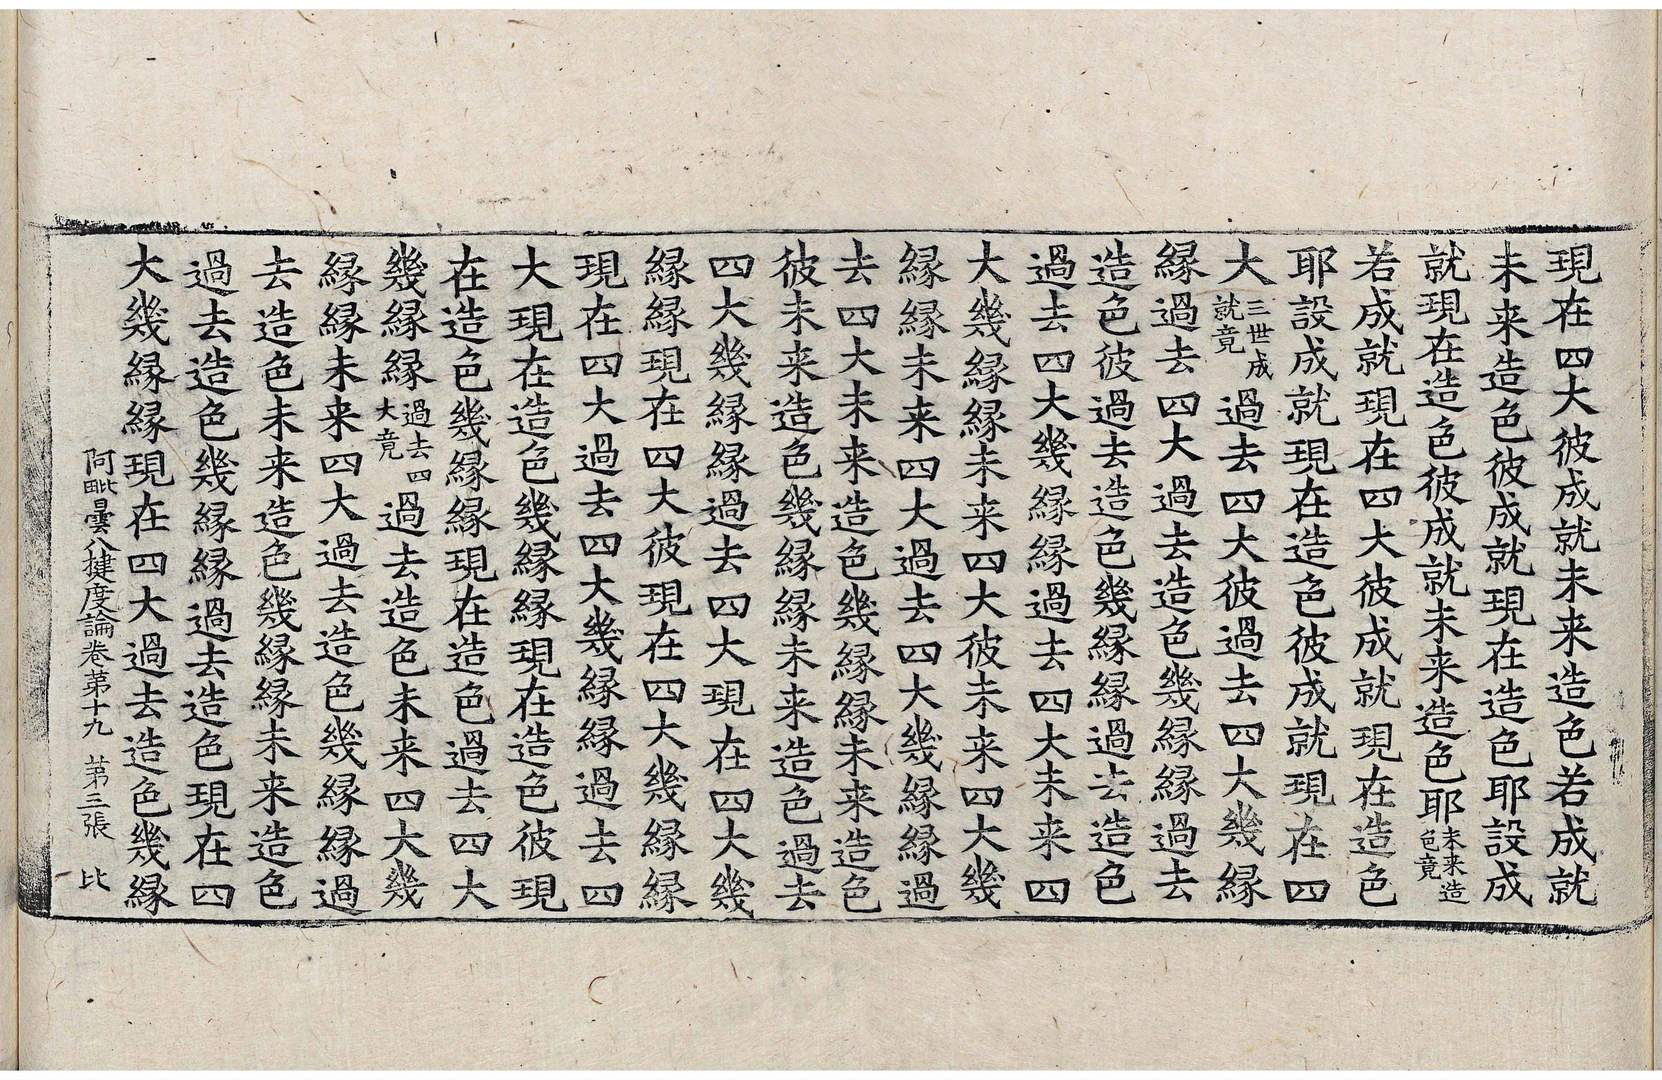 現在四大彼成就未来造色若成就
未来造色彼成就現在造色耶設成
就現在造色彼成就未来造色耶未来造色竟
若成就現在四大彼成就現在造色
耶設成就現在造色彼成就現在四
大三世成就竟過去四大彼過去四大幾縁
縁過去四大過去造色幾縁縁過去
造色彼過去造色幾縁縁過去造色
過去四大幾縁縁過去四大未来四
大幾縁縁未来四大彼未来四大幾
縁縁未来四大過去四大幾縁縁過
去四大未来造色幾縁縁未来造色
彼未来造色幾縁縁未来造色過去
四大幾縁縁過去四大現在四大幾
縁縁現在四大彼現在四大幾縁縁
現在四大過去四大幾縁縁過去四
大現在造色幾縁縁現在造色彼現
在造色幾縁縁現在造色過去四大
幾縁縁過去四大竟過去造色未来四大幾
縁縁未来四大過去造色幾縁縁過
去造色未来造色幾縁縁未来造色
過去造色幾縁縁過去造色現在四
大幾縁縁現在四大過去造色幾縁
阿毗曇八揵度論卷第十九　第三張　比